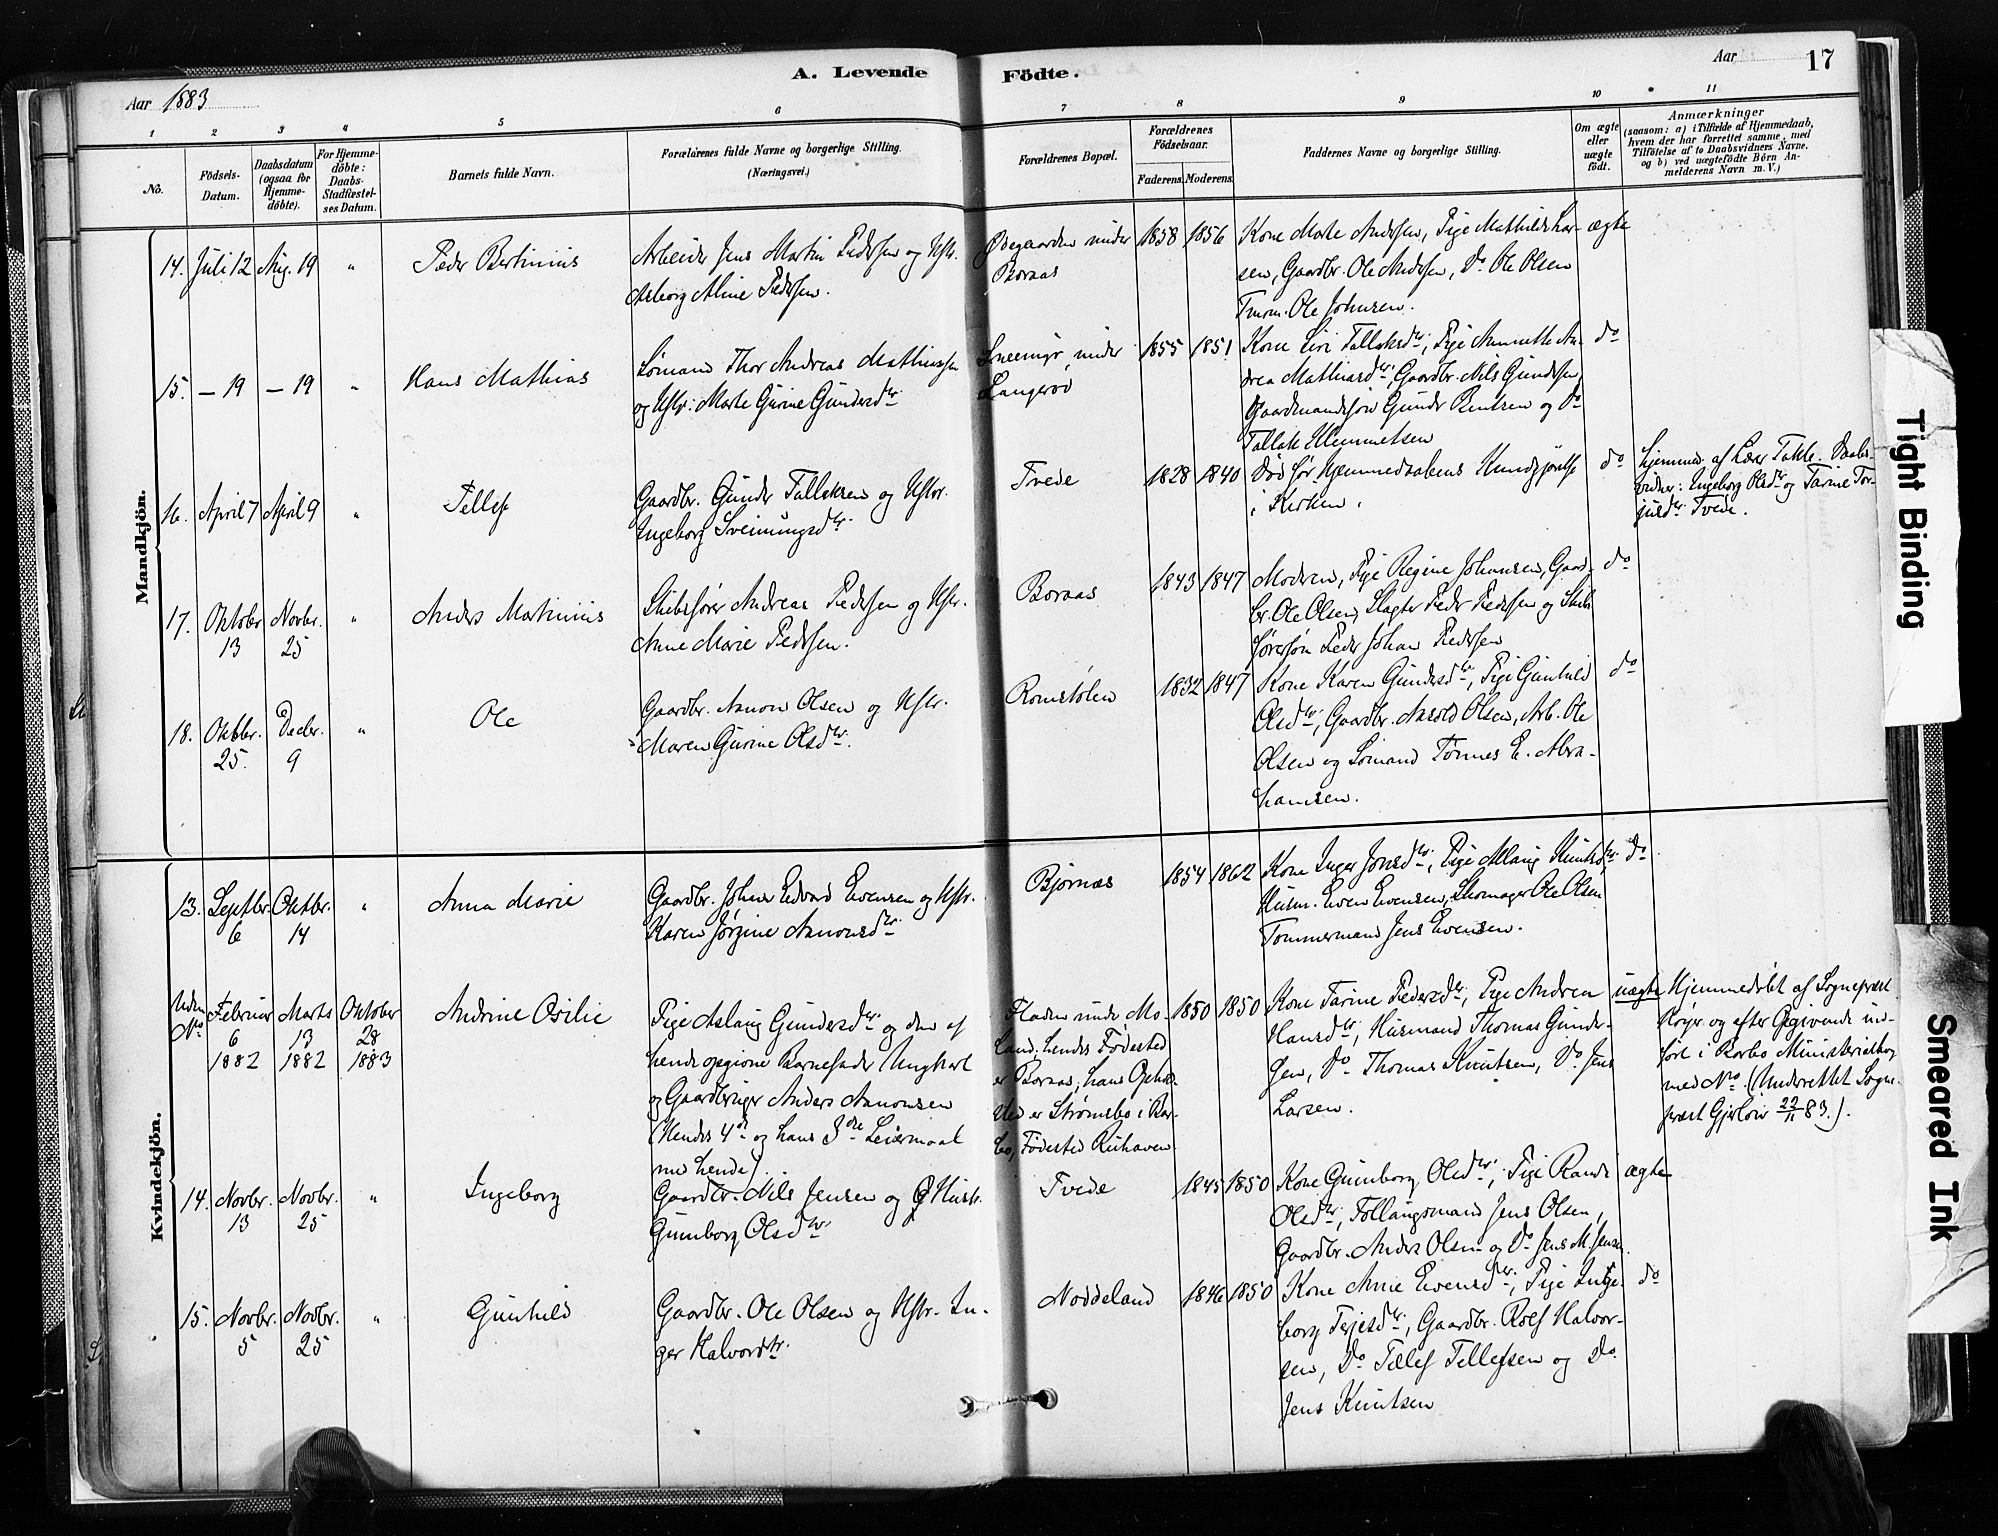 A. Levende Födte.
Aar 1883
Aar
17
1 2 3 4 5 6 7 8 9 10 11
No.
Födsels-Datum.
Daabsdatum (ogsaa for Hjemme-döbte).
For Hjemme-döbte: Daabs-Stadfæstel-ses Datum.
Barnets fulde Navn.
Forældrenes fulde Navne og borgerlige Stilling.
(Næringsvei.)
Forældrenes Bopæl.
Forældrenes Födselsaar.
Faderens. Moderens.
Faddernes Navne og borgerlige Stilling.
Om ægte eller uægte født.
Anmærkninger
(saasom: a) i Tilfælde af Hjemmedaab,
hvem der har forrettet samme, med
Tilføielse af to Daabsvidners Navne,
og b) ved uægtefödte Börn An-
melderens Navn m. V.)
Mandkjön.
14. Juli 12 Aug. 19 "
Peder Bertinius
Arbeider Jens Martin Pedersen og Hstr.
Asborg Aline Pedersen.
Ødegaarden under
Boraas
1858 1856
Kone Marte Andersen, Pige Mathilde Lar-
sen, Gaardbr. Ole Andersen, Do Ole Olsen
Tmrm. Ole Johnsen.
ægte
15. – 19 – 19 "
Hans Mathias
Sømand Thor Andreas Mathiassen
og Hstr. Marte Gurine Gundersdtr.
Sneemyr under
Langerød
1855 1851
Kone Siri Tallaksdtr., Pige Annette An-
drea Mathiasdtr., Gaardbr. Nils Gundersen,
Gaardmandssøn Gunder Berntsen og Do
Tallak Clemmetsen
do
16. April 7 April 9 "
Tellef
Gaardbr. Gunder Tallaksen og Hstr.
Ingeborg Sveinungsdtr.
Tvede
1828 1840
Død før Hjemmedaabens Kundgjørelse
i Kirken.
do
Hjemmed. af Lærer Takle. Daabs-
vidner: Ingeborg Olsdtr. og Tarine Tor-
jusdtr. Tvede.
17. Oktober 13 Novbr. 25 "
Anders Martinius
Skibsfører Andreas Pedersen og Hstr.
Anne Marie Pedersen.
Boraas
1843 1847
Moderen, Pige Regine Johansen, Gaard-
br. Ole Olsen, Slagter Peder Pedersen og Skibs-
førersøn Peder Johan Pedersen
do
18. Oktbr. 25. Decbr. 9 "
Ole
Gaardbr. Aanon Olsen og Hstr.
Maren Gurine Olsdtr.
Romstølen
1832 1847
Kone Karen Gundersdtr., Pige Gunhild
Olsdtr., Gaardbr. Aasold Olsen, Arb. Ole
Olsen og Sømand Tønnes E. Abra-
hamsen.
do
Kvindekjön.
13. Septbr. 6 Oktbr. 14 "
Anna Marie
Gaardbr. Johan Edvard Evensen og Hstr.
Karen Jørgine Aanonsdtr.
Bjørnas
1854 1862
Kone Inger Jonsdtr., Pige Aslaug Knutsdtr.
Husm. Even Evensen, Skomager Ole Olsen
Tømmermand Jens Evensen.
do
Uden No Februar 6 1882 Marts 13 1882 Oktober 28 1883
Andrine Osilie
Pige Aslaug Gundersdtr. og den af
hende opgivne Barnefader Ungkarl
og Gaardbruger Anders Aanonsen
(Hendes 4de og hans 3die Leiermaal
med hende).
Fladen under Mo-
land, hendes Fødested
er Boraas, hans Ophol-
sted er Strømsbo i Bar-
bo, Fødested Ruhaven
1850 1850
Kone Tarine Pedersdtr., Pige Andrea
Hansdtr., Husmand Thomas Gunder-
sen, Do Thomas Knutsen, Do Jens
Larsen.
uægte
Hjemmedøbt af Sognepræst
Høyer og efter Opgivende ind-
ført i Barbo Ministerialbog
med No. (Underrettet Sogne-
præst Gjerløw 22/11 83.).
14. Novbr. 13 Novbr. 25 "
Ingeborg
Gaardbr. Nils Jensen og Hustr.
Gunborg Olsdtr.
Tvede
1845 1850
Kone Gunborg Olsdtr., Pige Randi
Olsdtr., Follaugsmand Jens Olsen,
Gaardbr. Anders Olsen og Do Jens M. Jensen.
ægte
15. Novbr. 5 Novbr. 25 "
Gunhild
Gaardbr. Ole Olsen og Hstr. In-
ger Halvordtr.
Noddeland
1846 1850
Kone Anne Evensdtr., Pige Inge-
borg Terjesdtr., Gaardbr. Rolf Halvor-
sen, Do Tellef Tellefsen og Do.
Jens Knutsen
do
Tight Binding
Smeared Ink